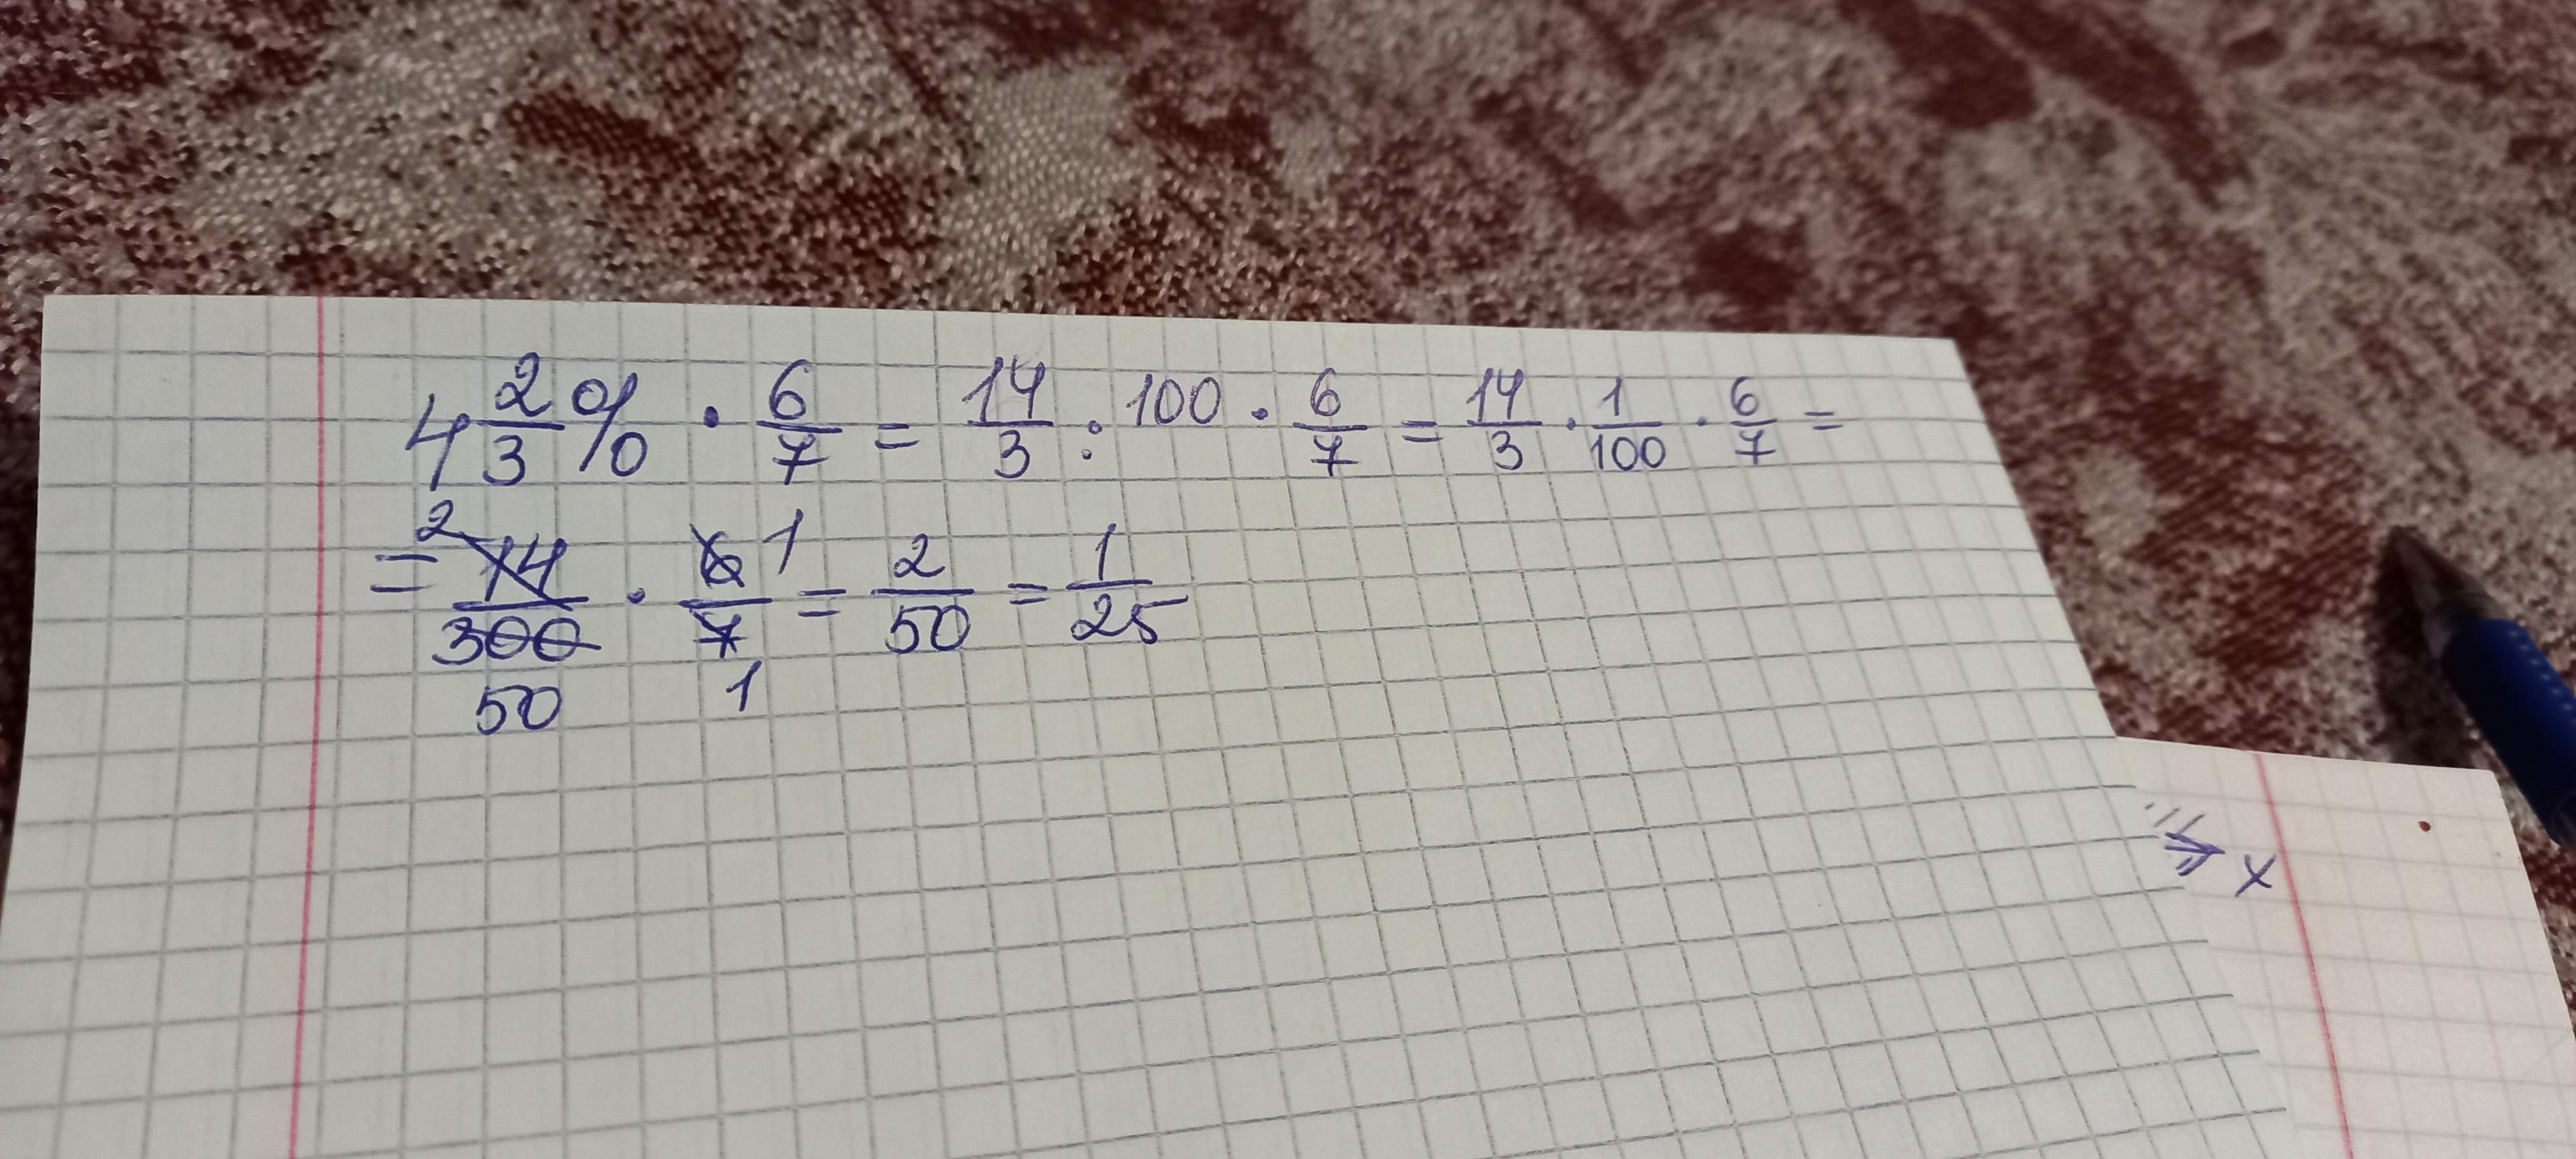 4 2/3 % · 6/7 = 14/3 : 100 · 6/7 = 14/3 · 1/100 · 6/7 =
= 2 14/300 50 · 6 1/7 1 = 2/50 = 1/25
x